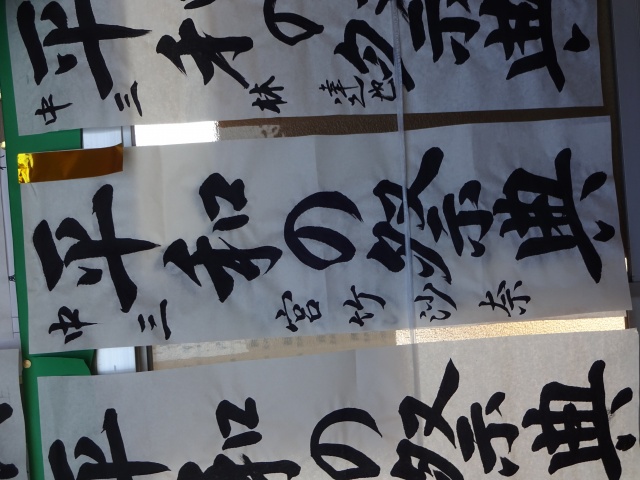 平和の祭典
中三 林 達也
平和の祭典
中三 宮竹沙奈
平和の祭典